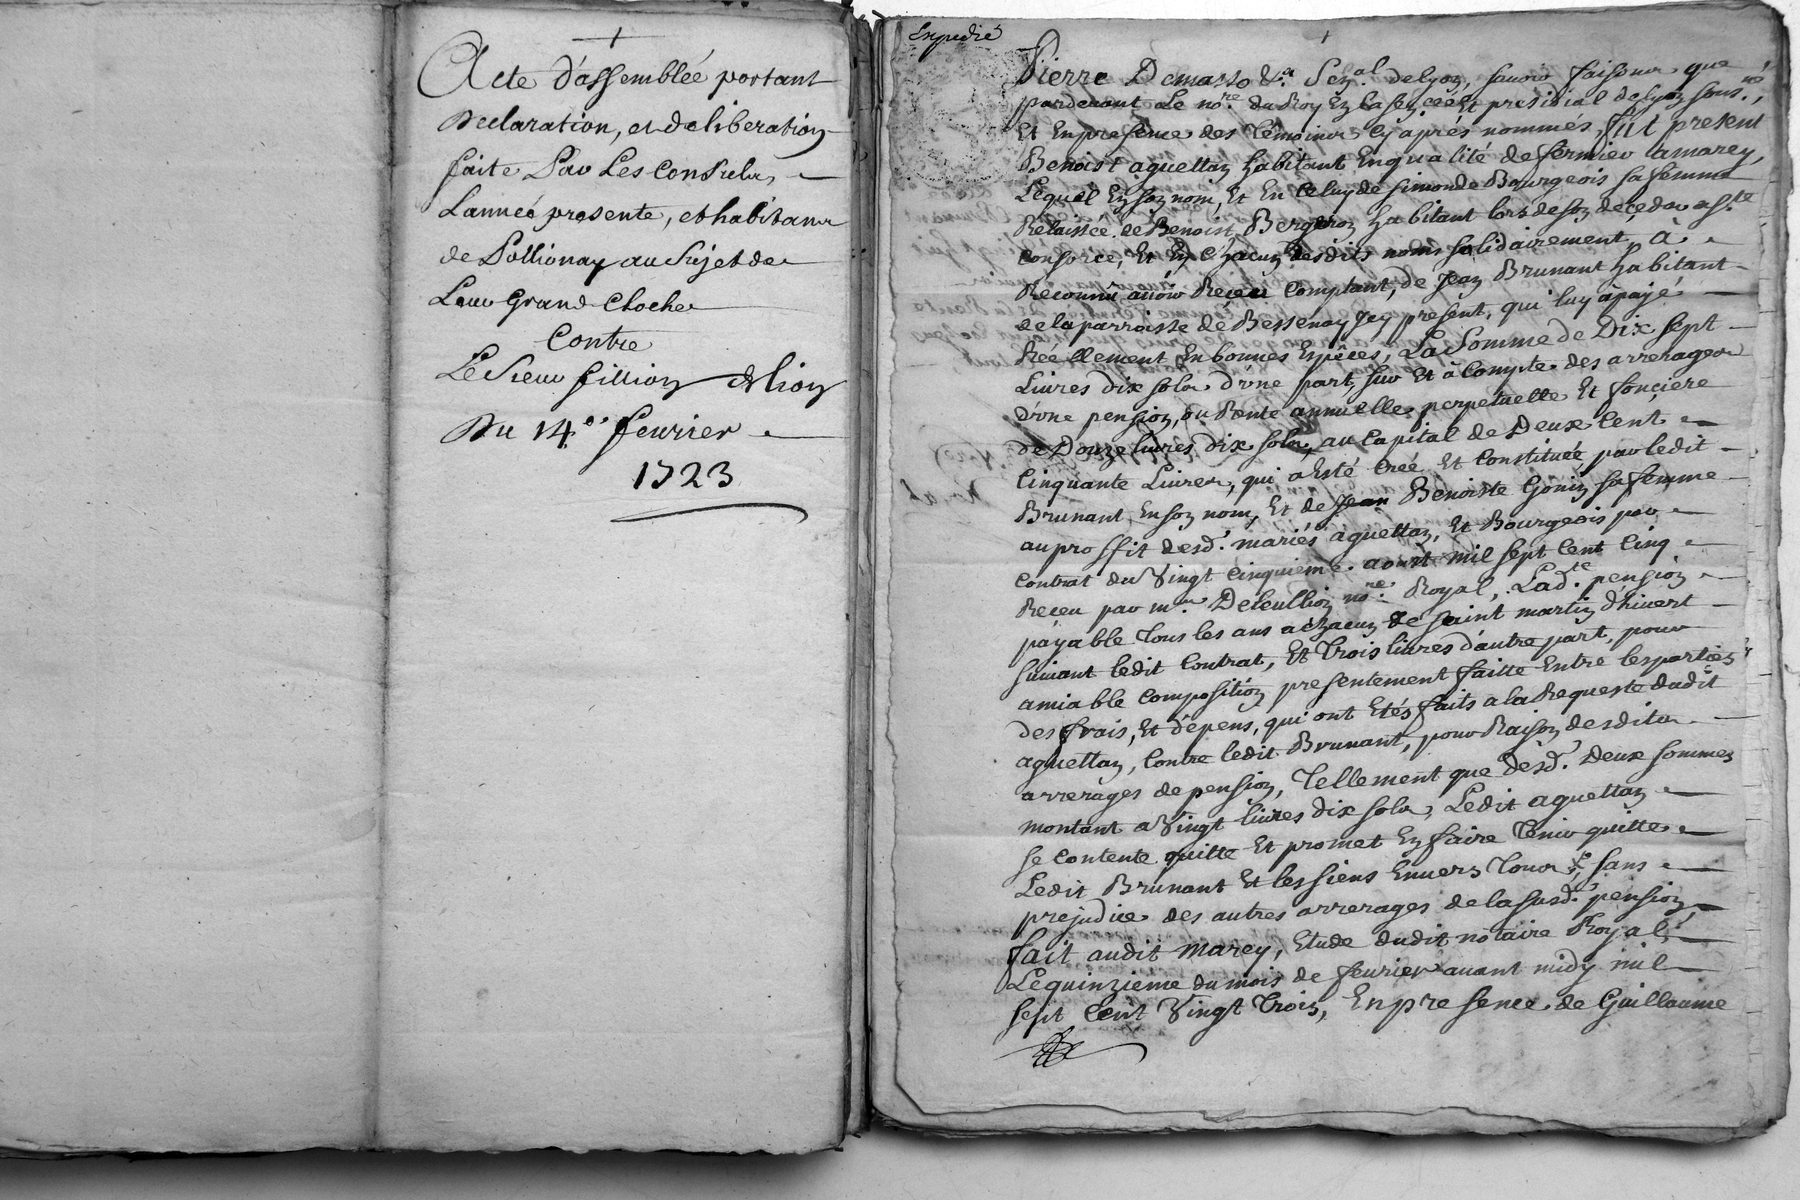 Acte d'assemblée portant
declaration, et deliberation
faite Par Les Consuls,
Lannée presente, et habitans
de Pollionay au Sujet de
Leur Grand Cloche
Contre
Le Sieur fillion de lion
Du 14e. feurier
1723
Expedié
Pierre Demasso &a Sen.al de lyon, sauoir faisons que
pardeuant Le no.re du Roy En la sen.cée et presidial de lyon sous.né,
Et En presence des Témoins cy aprés nommés, fut present
Benoist aguettan habitant En qualité de fermier a marcy,
Lequel En son nom, Et En Celuy de Simonde Bourgeois sa femme
Relaissée de Benoist Bergeron habitant lors de son deçedz a s.te
Consorce, Et En Chacun desdits noms solidairement, à
Reconnu auoir Reçeu Comptant, de Jean Brunant habitant
de la parroisse de Bessenay Jcy present, qui luy à payé
Réellement En bonnes Espêces, La Somme de Dix sept
Liures dix sols d'vne part, sur Et à Compte des arrerages
d'vne pension, ou Rente annuelle perpetuelle Et fonçiere
de Douze liures dix sols, au Capital de Deux Cent
Cinquante Liures, qui a Esté Creé Et Constituée par ledit
Brunant En son nom, Et de Jean Benoiste Gonin sa femme
au proffit desd. mariés aguettan, Et Bourgeois par
Contrat du Vingt Cinquieme aoust mil sept Cent Cinq
Reçeu par m.e Deleullion no.re Royal, Lad.te pension
payable Tous les ans a chacun de saint martin d'hiuert
suiuant ledit Contrat, Et Trois liures d'autre part, pour
amiable Composition presentement faitte Entre les parties
des frais, Et depens, qui ont Etés faits a la Requeste dudit
aguettan, Contre ledit Brunant, pour Raison desdits
arrerages de pension, Tellement que desd. Deux sommes
montant a Vingt liures dix sols, Ledit aguettan
se Contente quitte Et promet En faire Tenir quitte
Ledit Brunant Et les siens Enuers Tous, sans
prejudice des autres arrerages de la susd. pension
fait audit marcy, Etude dudit notaire Royal,
Le quinzieme du mois de feurier auant midy mil
sept Cent Vingt Trois, En presence de Guillaume